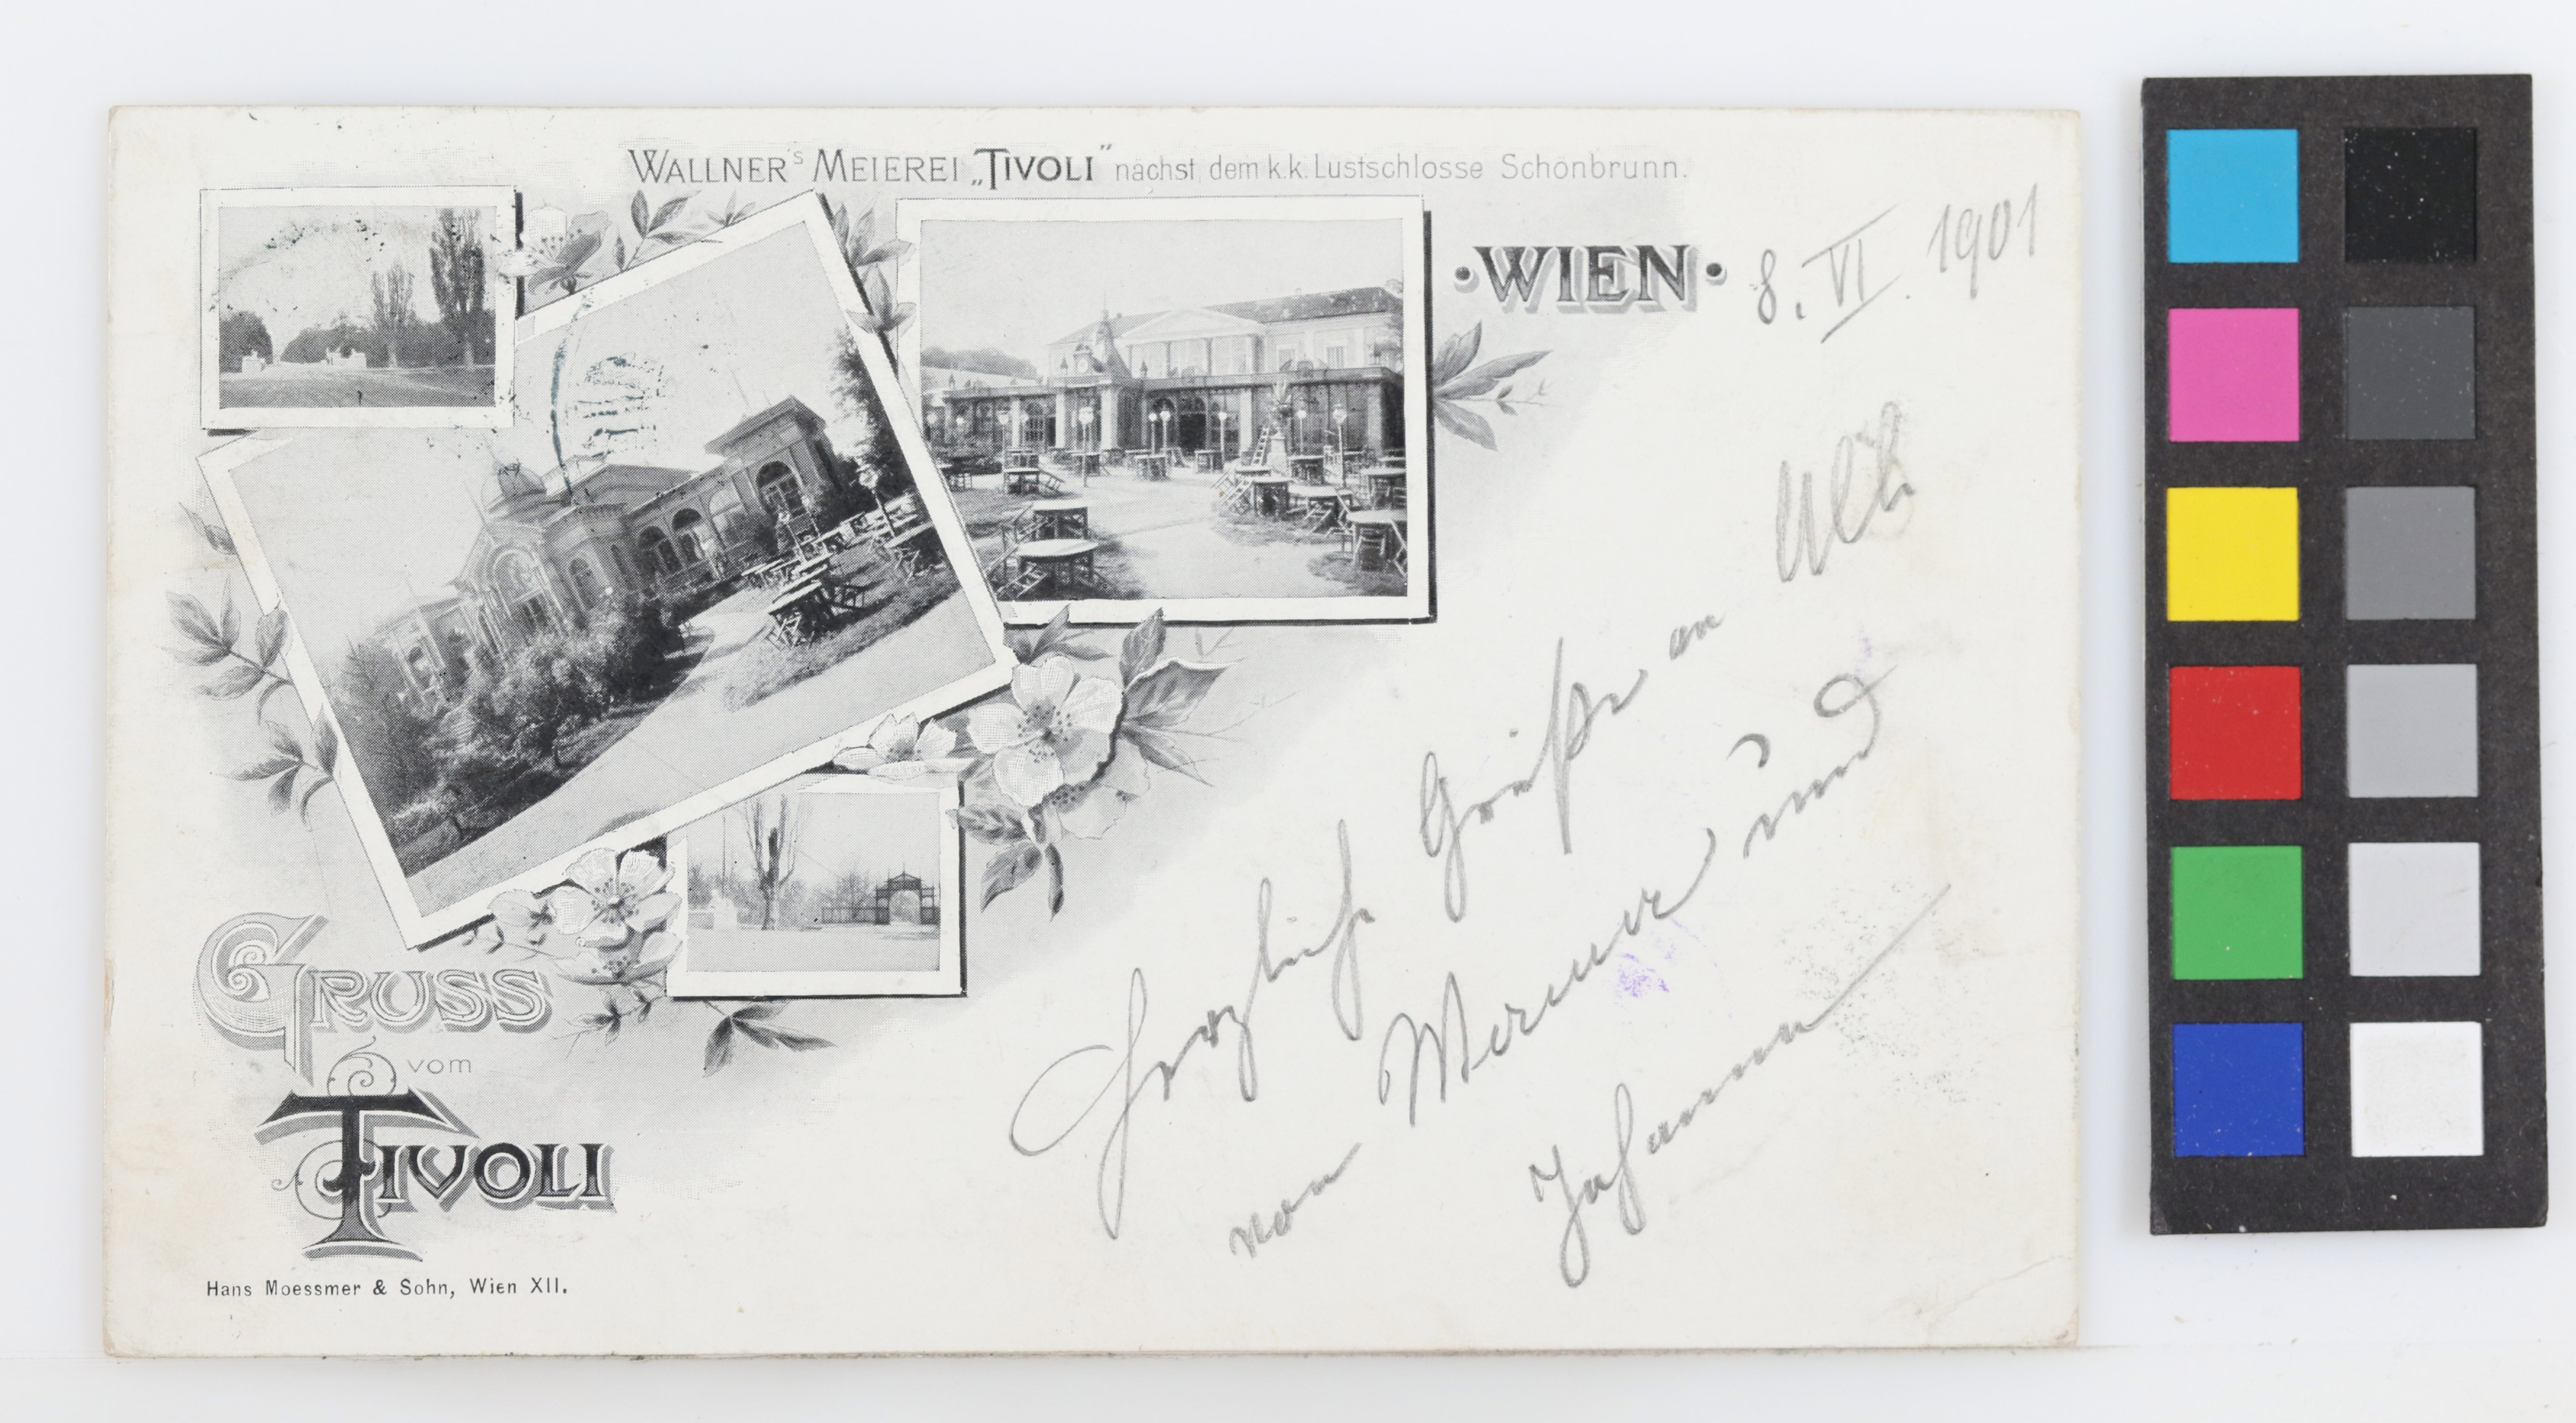 WALLNER's MEIEREI „TIVOLI" nächst dem k.k. Lustschlosse Schönbrunn.
·WIEN·
8. VI. 1901
Herzliche Grüße an
von Werner und
Johanna
GRUSS
vom
TIVOLI
Hans Moessmer & Sohn, Wien XII.